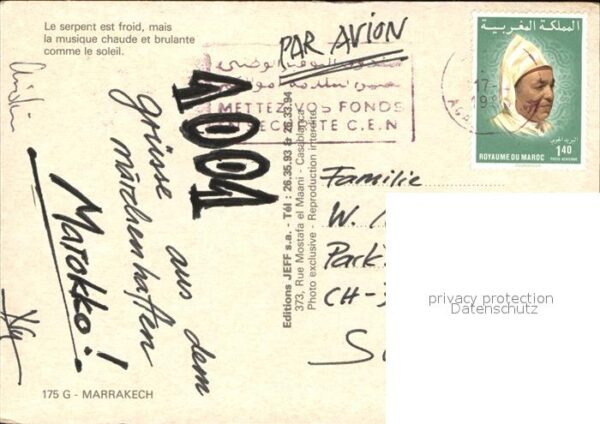 Le serpent est froid, mais
la musique chaude et brulante
comme le soleil.
PAR AVION
METTEZ VOS FONDS
C.E.N
المملكة المغربية
البريد الجوي
1.40
ROYAUME DU MAROC
POSTE AERIENNE
1001
Grüsse aus dem
märchenhaften
Marokko!
Editions JEFF s.a. - Tél : 26.35.93 & 26.33.94
373, Rue Mostafa el Maani - Casablanca
Photo exclusive - Reproduction interdite
Familie
W.
Park
CH-3
privacy protection
Datenschutz
175 G - MARRAKECH